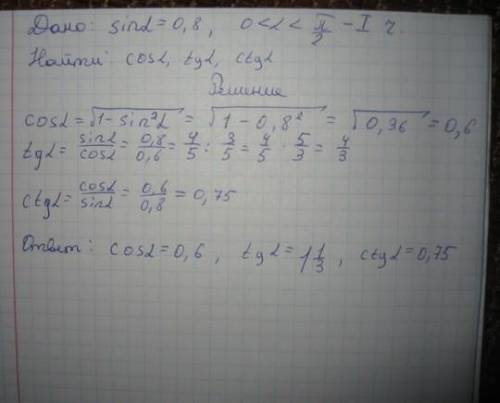 Дано: sinα = 0,8, 0 < α < π/2 – I ч.
Найти: cosα, tgα, ctgα
Решение
cosα = √(1 – sin²α) = √(1 – 0,8²) = √0,36 = 0,6
tgα = sinα/cosα = 0,8/0,6 = 4/5 : 3/5 = 4/5 · 5/3 = 4/3
ctgα = cosα/sinα = 0,6/0,8 = 0,75
Ответ: cosα = 0,6, tgα = 1 1/3, ctgα = 0,75